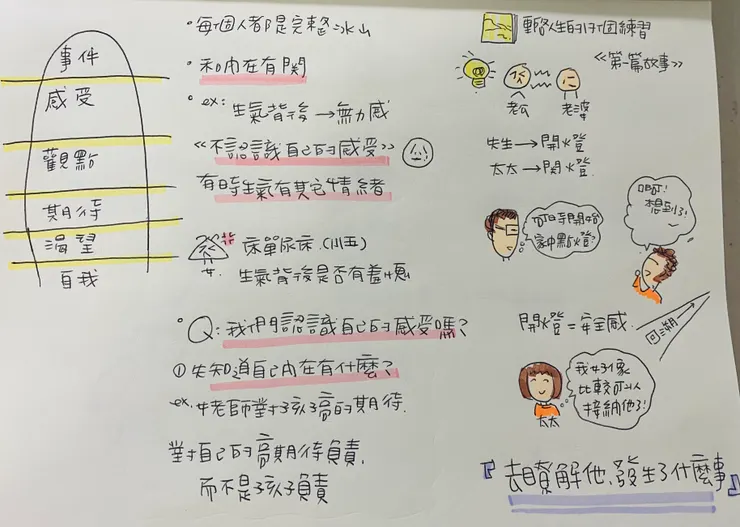 事件
感受
觀點
期待
渴望
自我
•每個人都是完整冰山
•和內在有關
•ex: 生氣背後→無力感
《不認識自己的感受》
有時生氣有其它情緒
床單尿床(小五)
女. 生氣背後是否有羞愧
•Q:我們認識自己的感受嗎?
①先知道自己內在有什麼?
ex.女老師對孩子高的期待.
對自己的高期待負責,
而不是孩子負責
重啟人生的17個練習
《第一篇故事》
老公 老婆
先生→開燈
太太→關燈.
何時開始
家中點燈?
啊!
想到了!
開燈=安全感.
回溯
我好像
比較可以
接納他了!
太太
『去瞭解他,發生了什麼事』